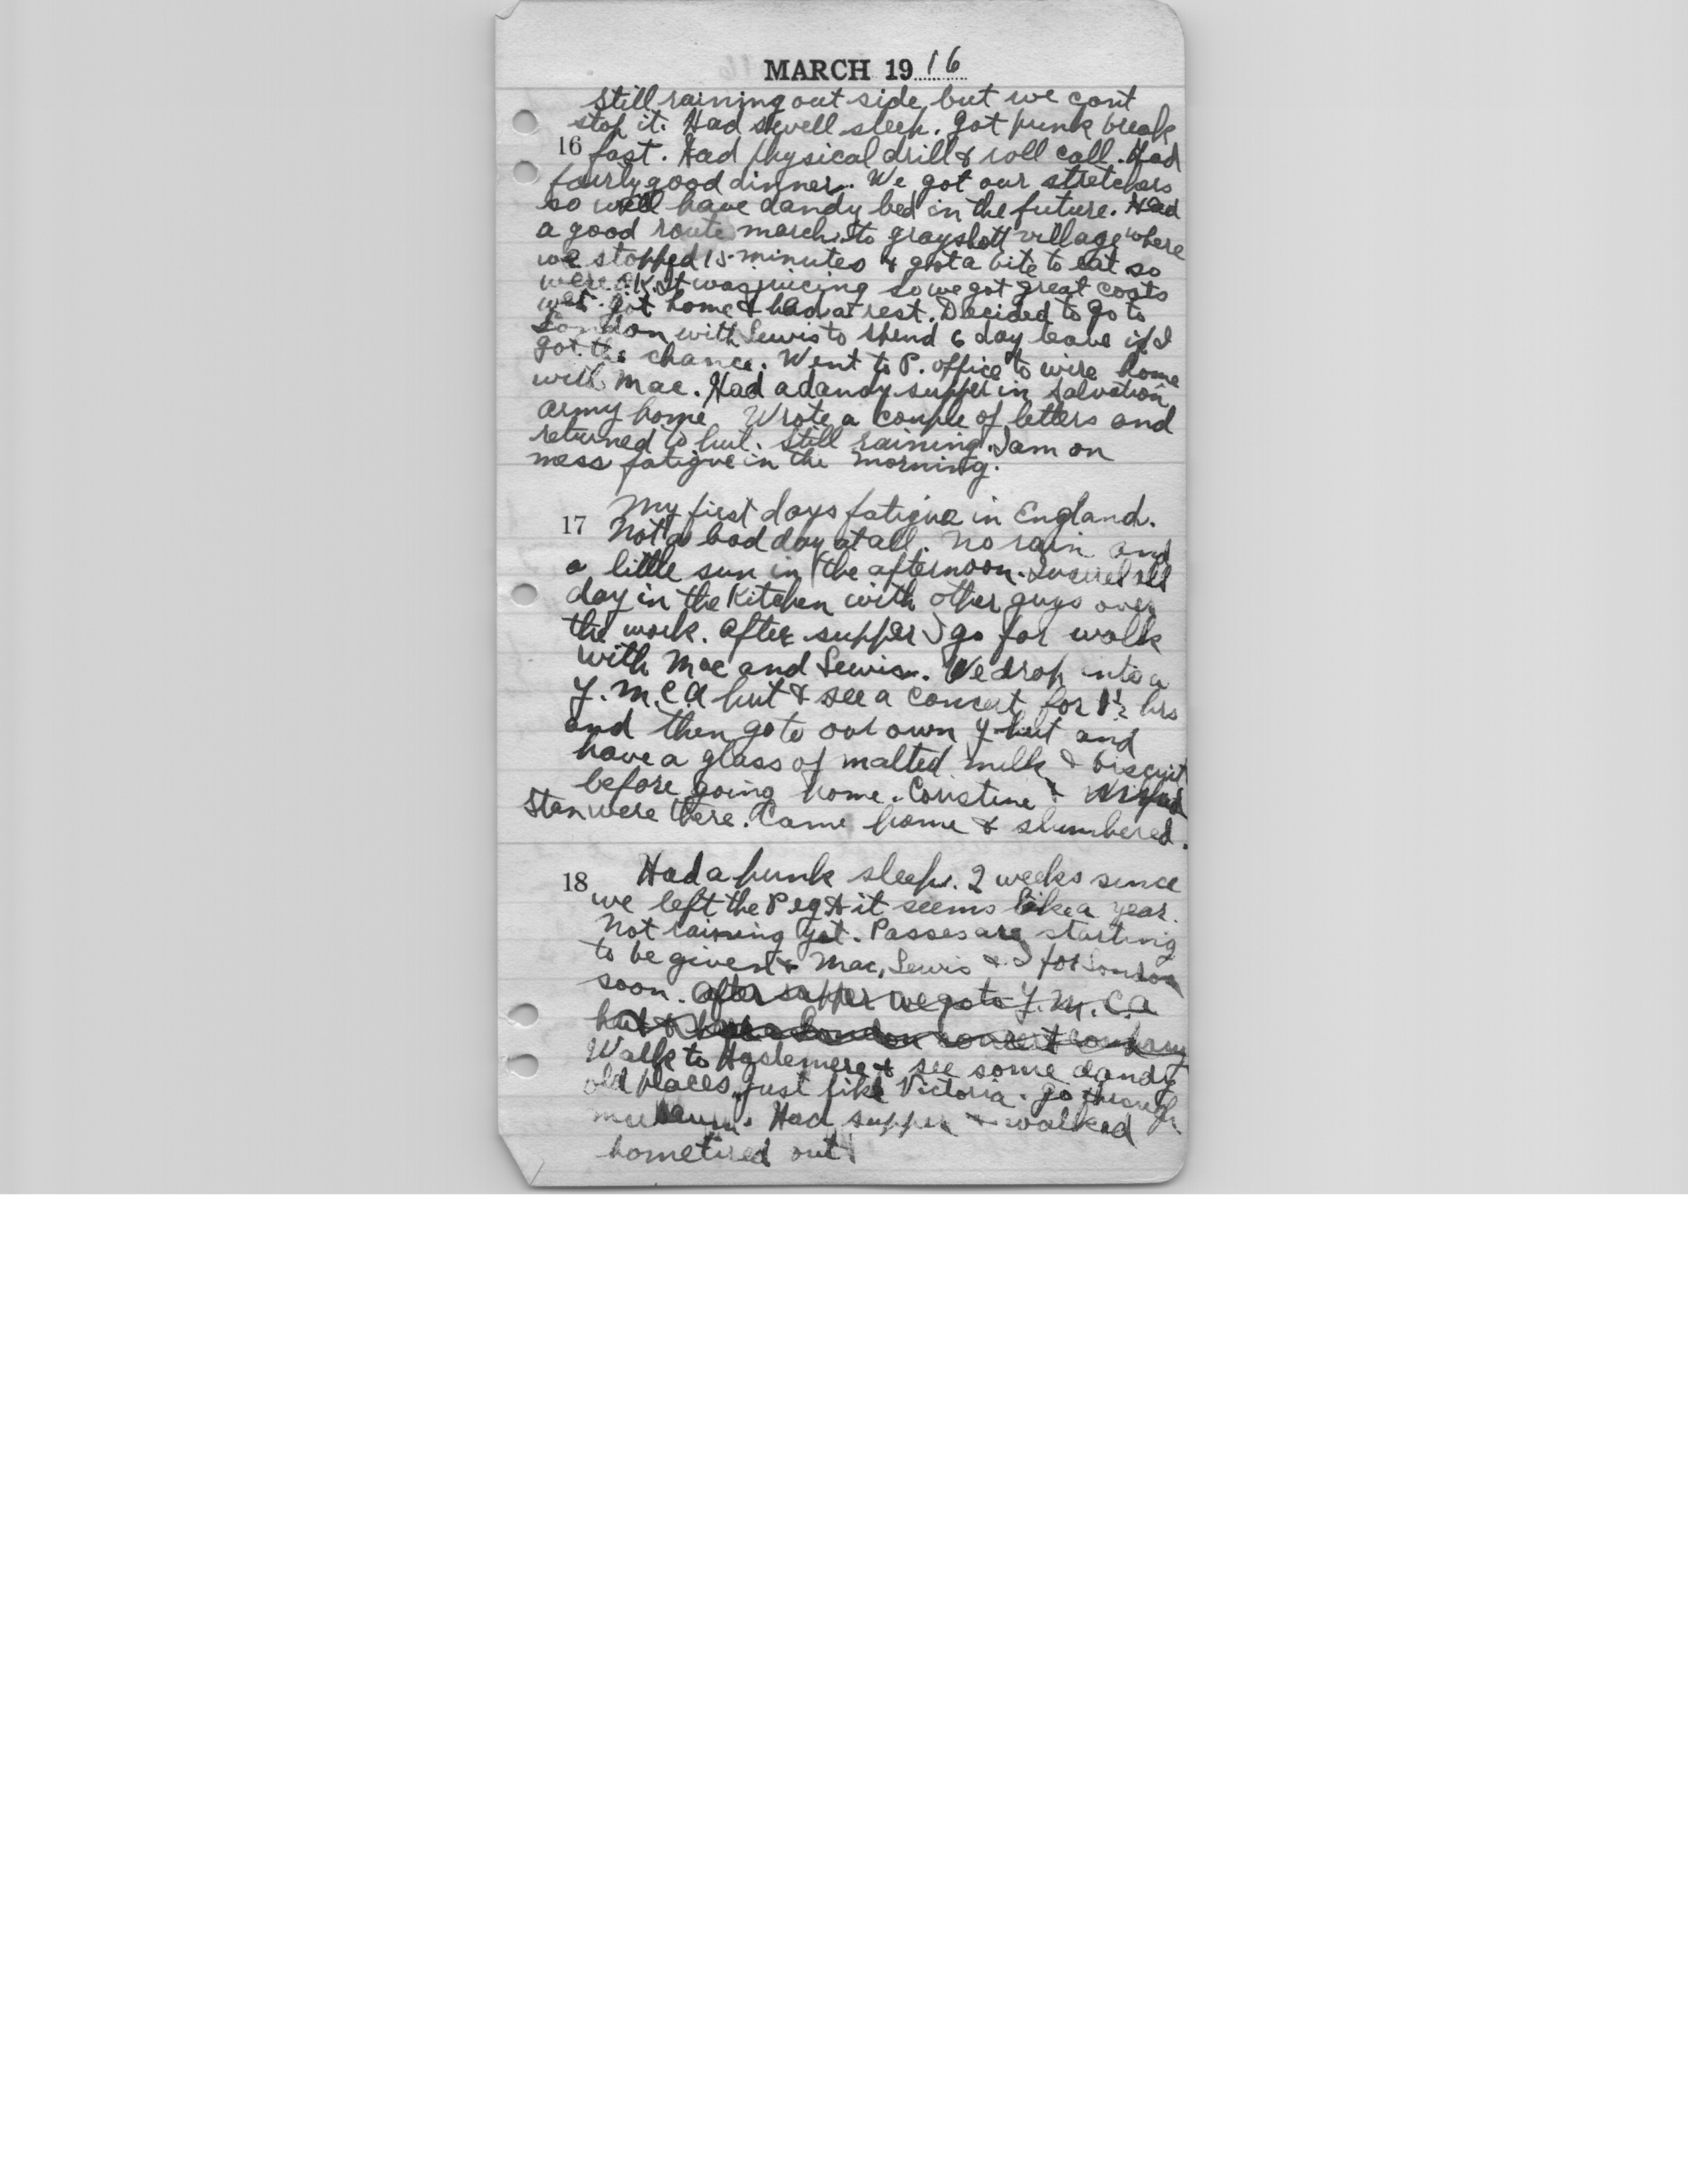 MARCH 1916
Still raining out side but we cant
stop it. Had swell sleep. Got punk break
16 fast. Had physical drill & roll call. Had
fairly good dinner. We got our stretchers
so well have dandy bed in the future. Had
a good route march to grayshott village where
we stopped 15 minutes & got a bite to eat so
were O.K. It was juicing so we got great coats
wet. Got home & had a rest. Decided to go to
London with Lewis to spend 6 day leave if I
got the chance. Went to P. office to wire home
with Mac. Had a dandy supper in Salvation
army home Wrote a couple of letters and
returned to hut. Still raining. I am on
mess fatigue in the morning.
17 My first days fatigue in England.
Not a bad day at all. No rain and
a little sun in the afternoon. all
day in the Kitchen with other guys over
the work. After supper I go for walk
with Mac and Lewis. We drop into a
Y.M.C.A hut & see a concert for 1½ hrs
and then go to our own Y hut and
have a glass of malted milk & biscuit
before going home. &
Stan were there. Came home & slumbered.
18 Had a punk sleep. 2 weeks since
we left the Peg & it seems like a year.
Not raining yet. Passes are starting
to be given & Mac, Lewis & I for London
soon. After supper we go to Y.M.C.A
hut & London concert
Walk to Haslemere & see some dandy
old places just like Victoria. Go through
museum. Had supper & walked
home tired out.